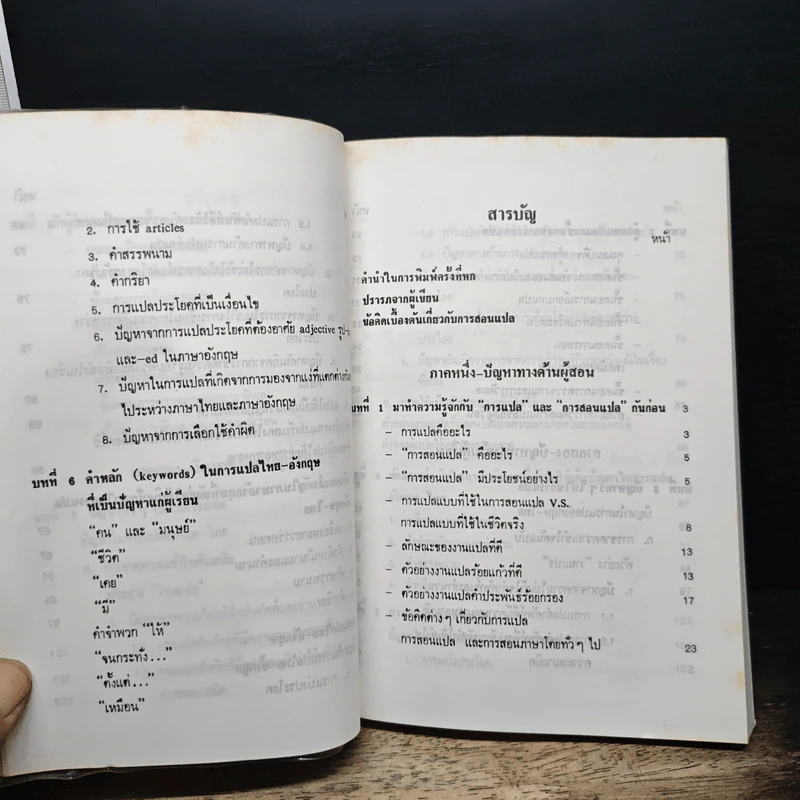 2. การใช้ articles
3. คำสรรพนาม
4. คำกริยา
5. การแปลประโยคที่เป็นเงื่อนไข
6. ปัญหาจากการแปลประโยคที่ต้องอาศัย adjective รูป
และ-ed ในภาษาอังกฤษ
7. ปัญหาในการแปลที่เกิดจากการมองจากแง่ที่แตกต่างกัน
ไประหว่างภาษาไทยและภาษาอังกฤษ
8. ปัญหาจากการเลือกใช้คำผิด
บทที่ 6 คำหลัก (keywords) ในการแปลไทย-อังกฤษ
ที่เป็นปัญหาแก่ผู้เรียน
“คน” และ “มนุษย์”
“ชีวิต”
“เคย”
“มี”
คำจำพวก “ให้”
“จนกระทั่ง...”
“ตั้งแต่...”
“เหมือน”
สารบัญ
หน้า
คำนำในการพิมพ์ครั้งที่หก
ปรารภจากผู้เขียน
ข้อคิดเบื้องต้นเกี่ยวกับการสอนแปล
ภาคหนึ่ง-ปัญหาทางด้านผู้สอน
บทที่ 1 มาทำความรู้จักกับ “การแปล” และ “การสอนแปล” กันก่อน 3
- การแปลคืออะไร 3
- “การสอนแปล” คืออะไร 5
- “การสอนแปล” มีประโยชน์อย่างไร 5
- การแปลแบบที่ใช้ในการสอนแปล V.S.
การแปลแบบที่ใช้ในชีวิตจริง 8
- ลักษณะของงานแปลที่ดี 13
- ตัวอย่างงานแปลร้อยแก้วที่ดี 13
- ตัวอย่างงานแปลคำประพันธ์ร้อยกรอง 17
- ข้อคิดต่างๆ เกี่ยวกับการแปล
การสอนแปล และการสอนภาษาโดยทั่วๆ ไป 23